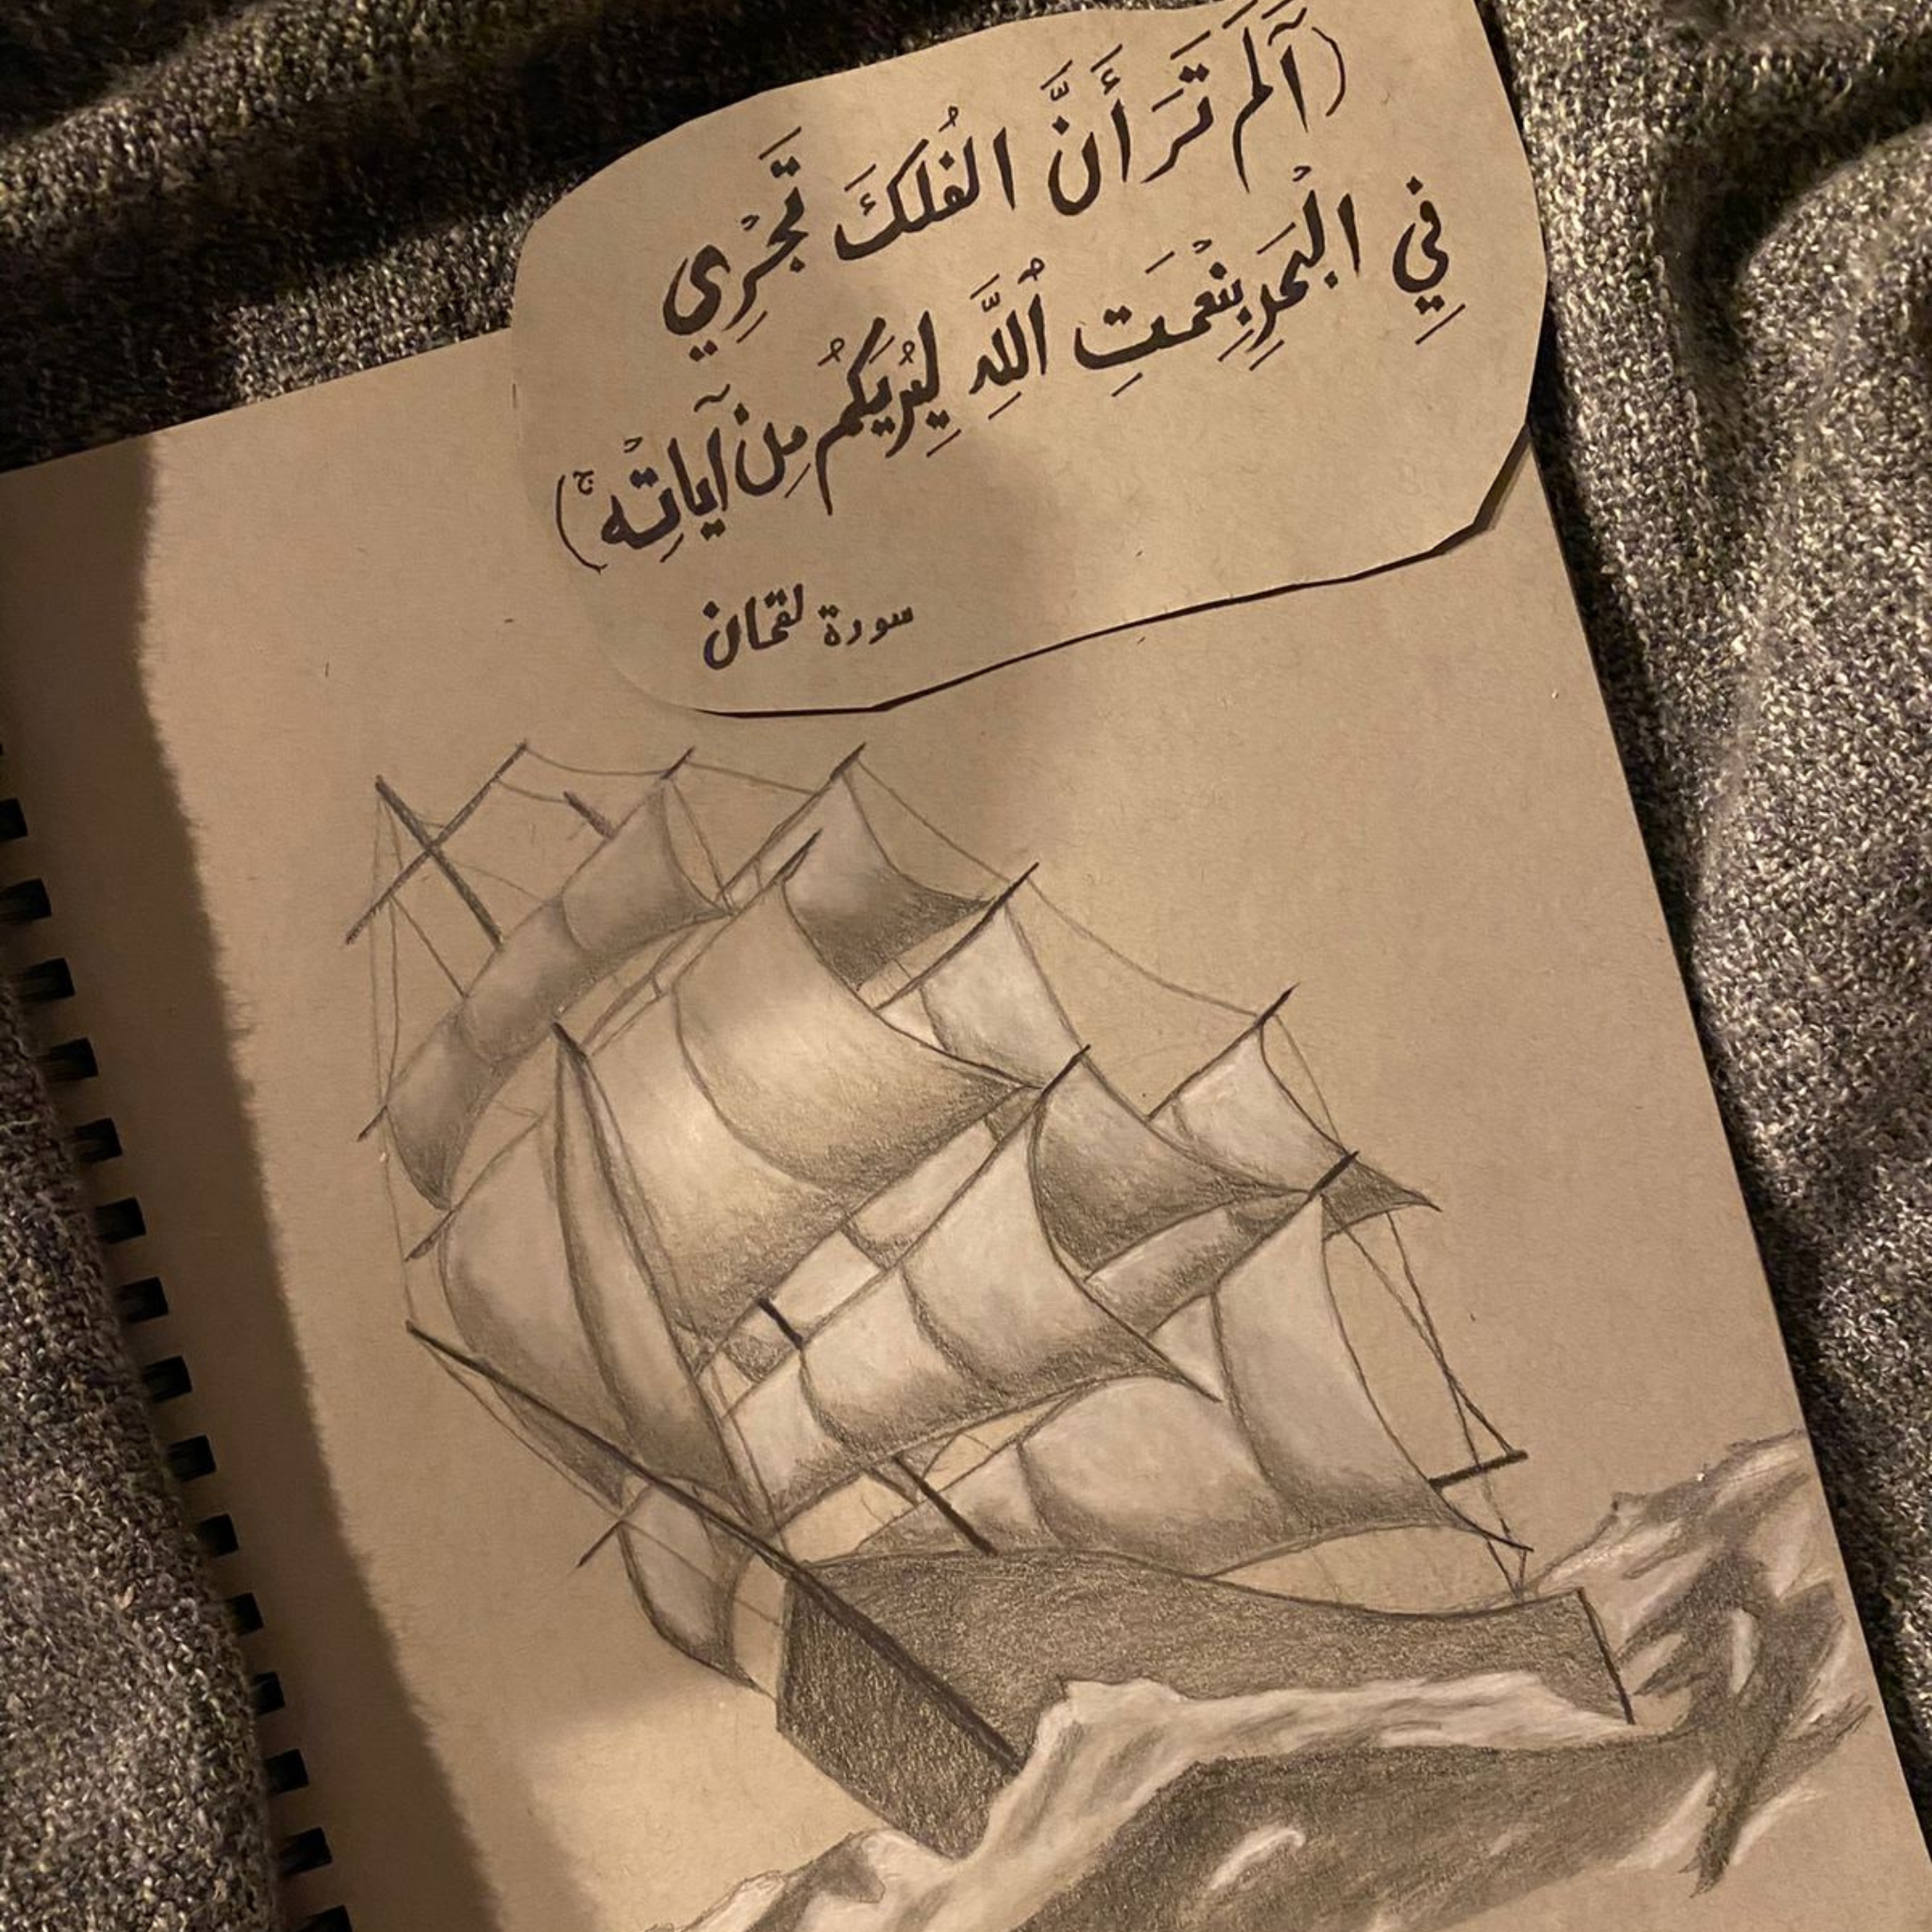 (آلَمَ تَرَ أَنَّ الفُلكَ تَجْرِي
فِي الْبَحَرِ بِنِعْمَتِ ٱللَّهِ لِيُرِيَكُمْ مِن آيَاتِهْ ۚ)
سورة لقمان